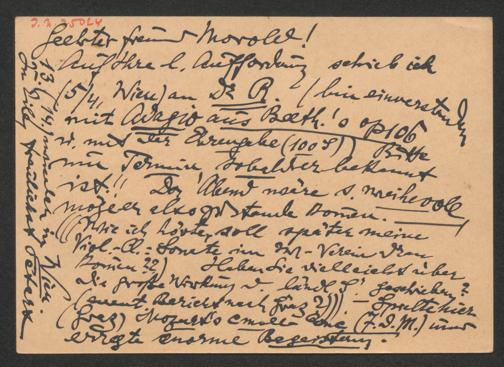 Liebster Freund Morold!
Auf Ihre l. Aufforderung schrieb ich
(5/4, Wien) an Dr R. (bin einverstanden
mit Adagio aus Beeth.'s op 106
u. mit der Ehrengabe (100 S) Bitte
nur Termin sobald er bekannt
ist!! Der Abend wäre s. weihevoll
möge er also zustande kommen.
(((Wie ich hörte, soll später meine
Viol.-Cl.-Sonate im -Verein dran
kommen ??) Haben Sie vielleicht über
die große Wirkung d. geschrieben?
(event Bericht nach Graz?))) — Spielte hier
(Graz) Mozart's cmoll Conc (7. d. M.) und
erregte enorme Begeisterung.
13./4 in Wien